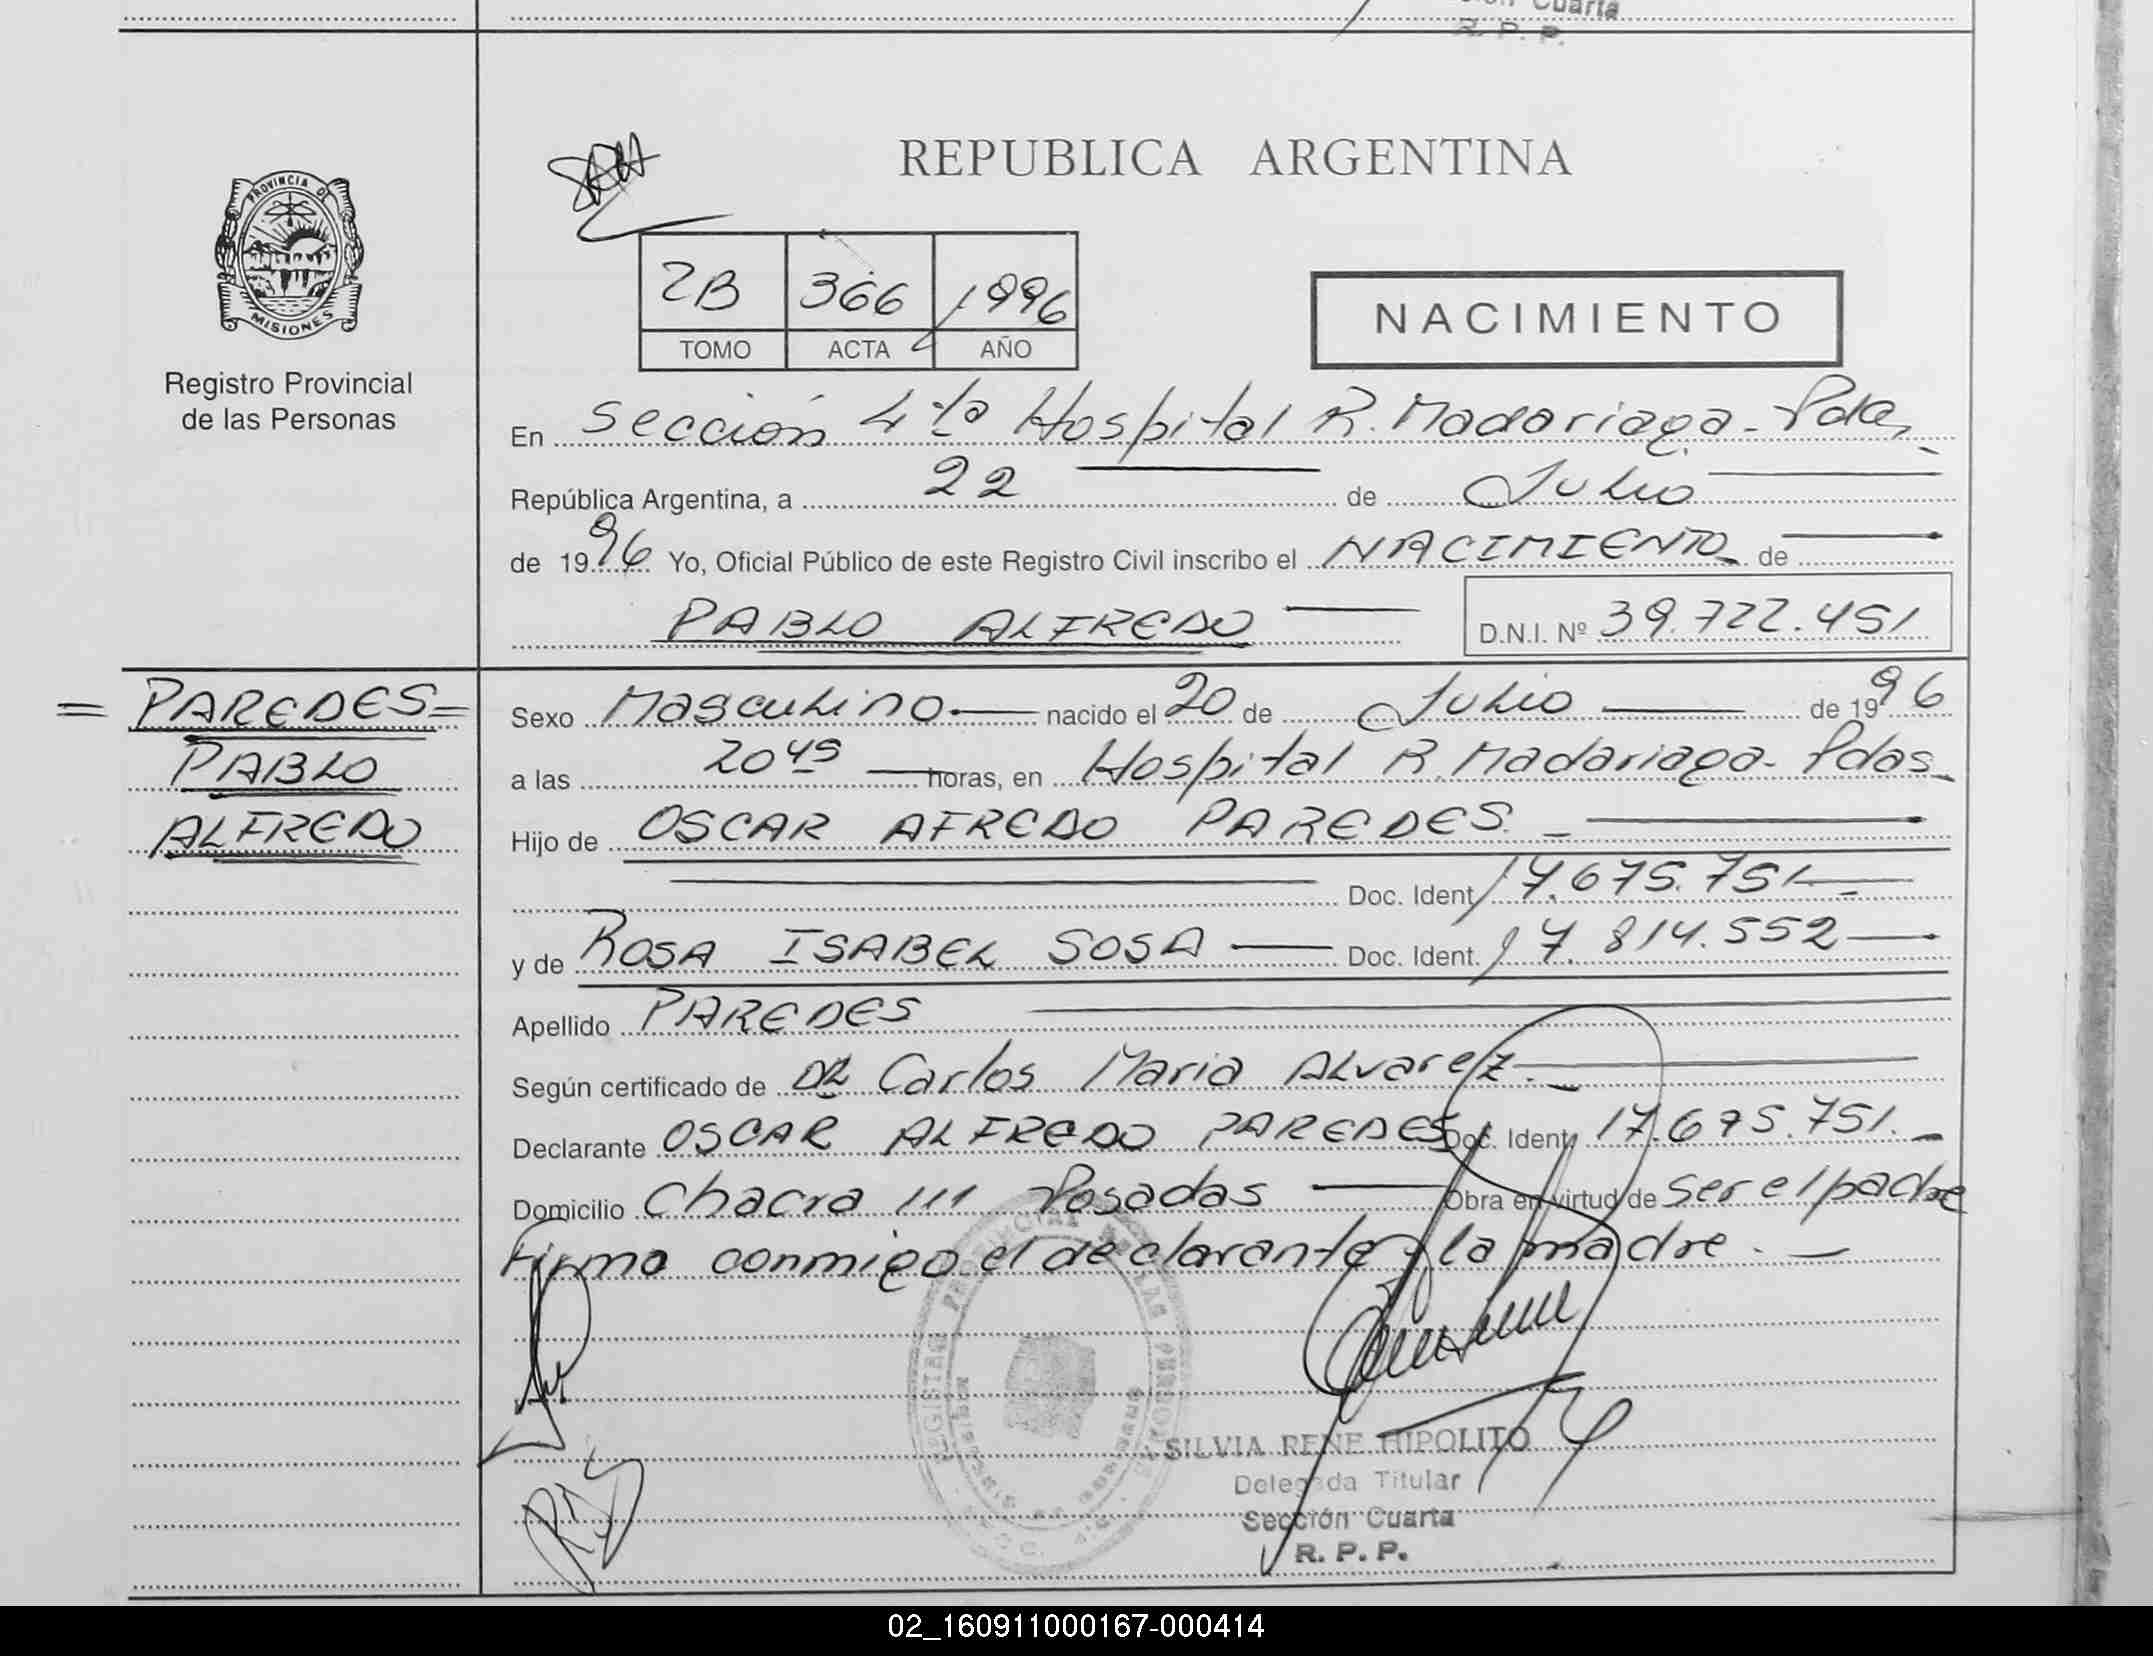 Sección Cuarta
R. P. P.
PROVINCIA DE
MISIONES
Registro Provincial
de las Personas
REPUBLICA ARGENTINA
2B 366 1996
TOMO ACTA AÑO
NACIMIENTO
En Sección 4ta Hospital R. Madariaga - Pdas,
República Argentina, a 22 de Julio
de 1996 Yo, Oficial Público de este Registro Civil inscribo el NACIMIENTO de
PABLO ALFREDO D.N.I. Nº 39.722.451
= PAREDES =
PABLO
ALFREDO
Sexo Masculino nacido el 20 de Julio de 1996
a las 20 45 horas, en Hospital R. Madariaga - Pdas
Hijo de OSCAR AFREDO PAREDES.
Doc. Ident. 17.675.751
y de ROSA ISABEL SOSA Doc. Ident. 17.814.552
Apellido PAREDES
Según certificado de DR Carlos Maria Alvarez.
Declarante OSCAR ALFREDO PAREDES Doc. Ident. 17.675.751.
Domicilio Chacra 111 Posadas Obra en virtud de ser el padre
Firma conmigo el declarante y la madre.
REGISTRO PROVINCIAL DE LAS PERSONAS
SILVIA RENE HIPOLITO
Delegada Titular
Sección Cuarta
R. P. P.
02_160911000167-000414